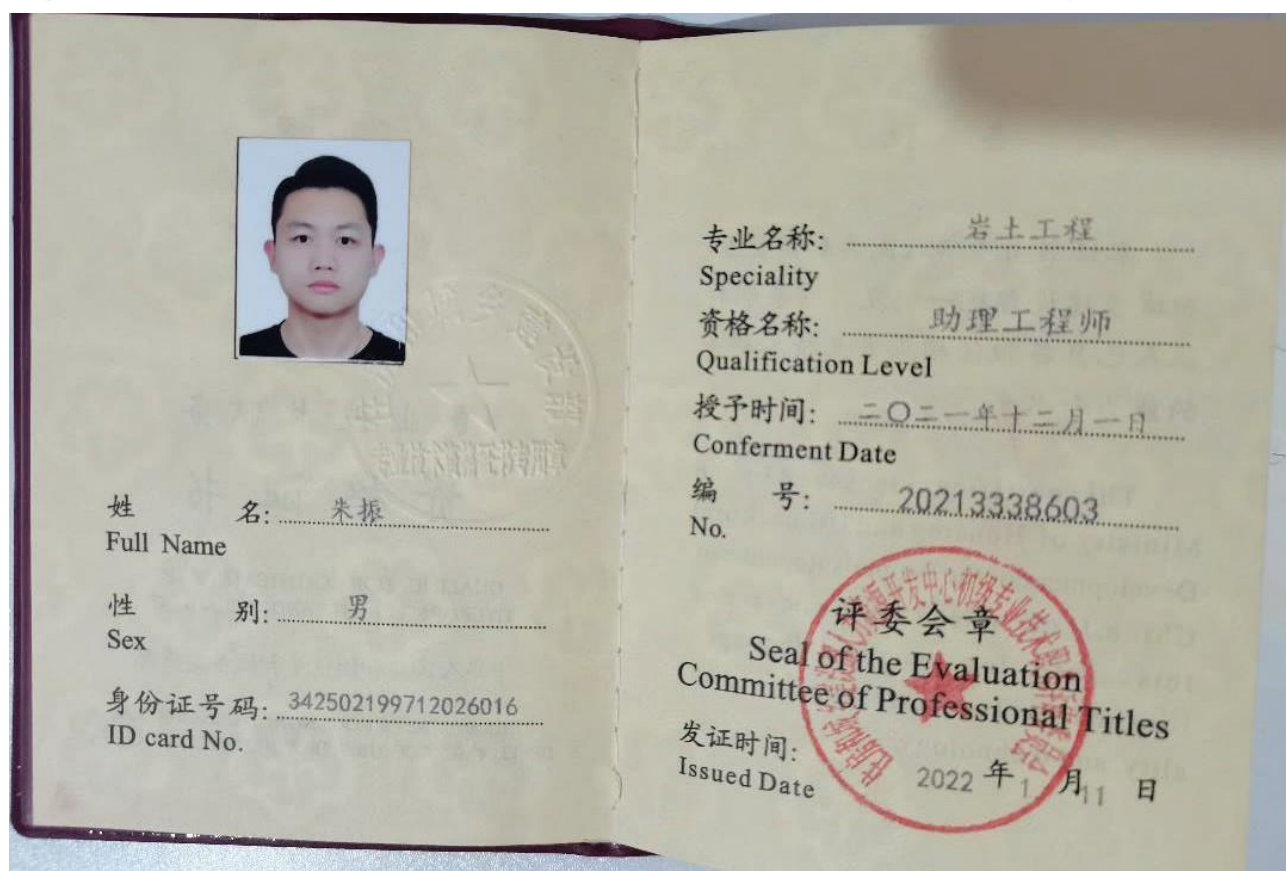 姓 名: 朱振
Full Name
性 别: 男
Sex
身份证号码: 342502199712026016
ID card No.
专业名称: 岩土工程
Speciality
资格名称: 助理工程师
Qualification Level
授予时间: 二〇二一年十二月一日
Conferment Date
编 号: 20213338603
No.
评委会章
Seal of the Evaluation
Committee of Professional Titles
发证时间: 2022 年 1 月 11 日
Issued Date